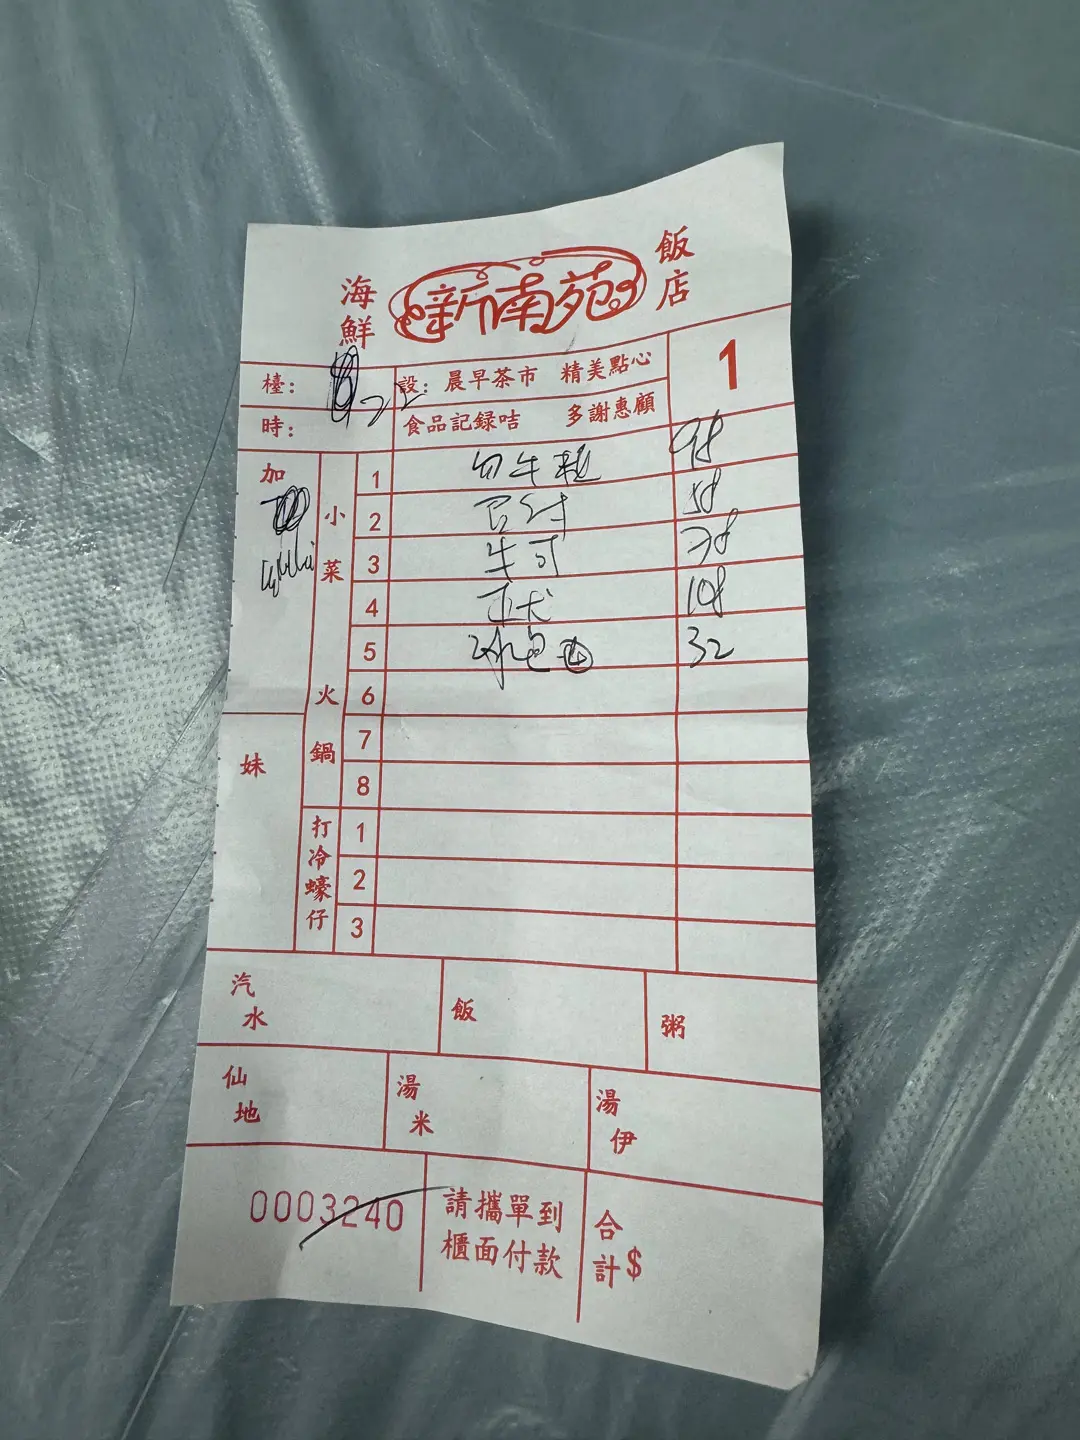 海鮮 新南苑 飯店
檯: 22 設: 晨早茶市 精美點心 1
時: 食品記録咭 多謝惠顧
加 小菜火鍋 1 98
2 58
3 牛 78
4 108
5 冰 32
6
7
8
妹
打冷蠔仔 1
2
3
汽水 飯 粥
仙地 湯米 湯伊
0003240 請攜單到櫃面付款 合計$